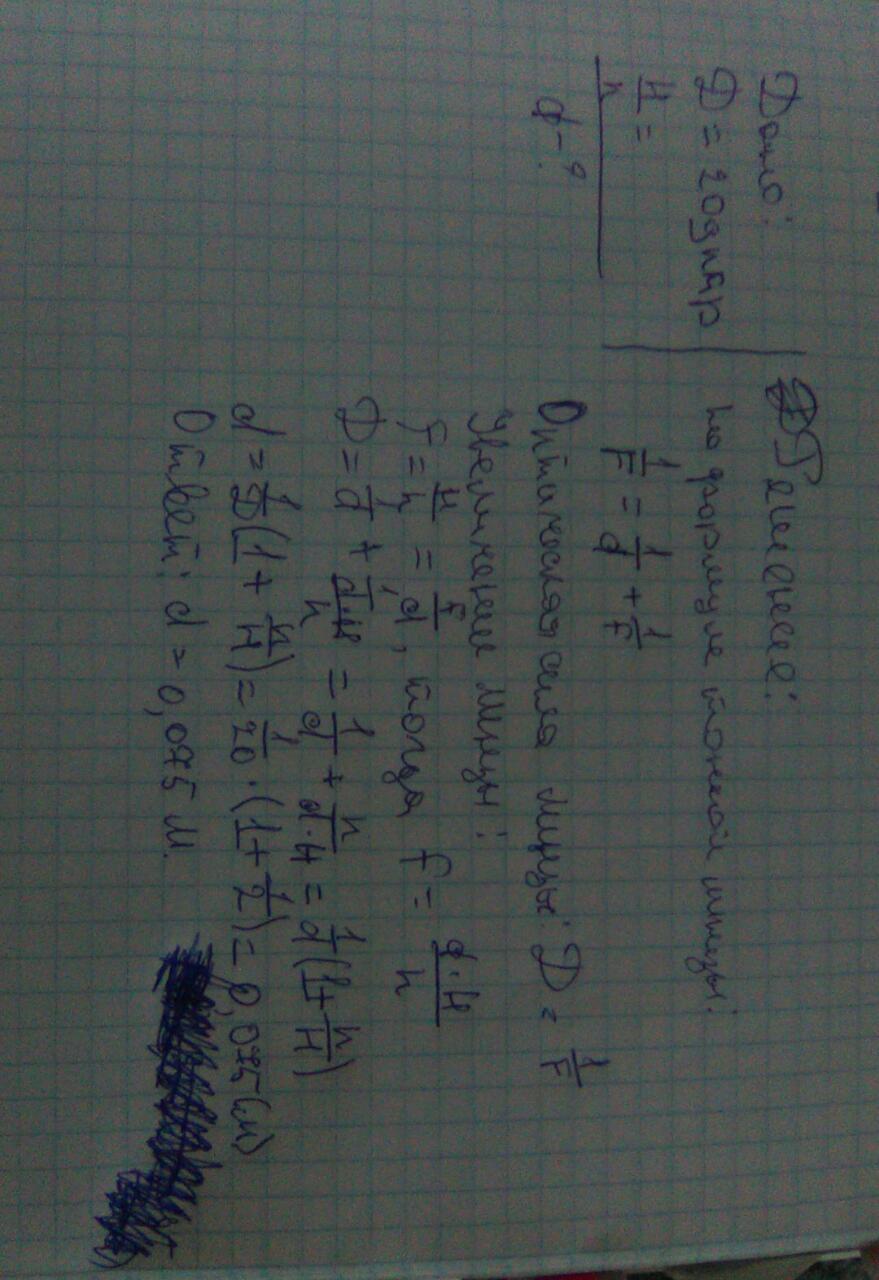 Дано:
D = 20 дптр
H/h =
d - ?
Решение:
по формуле тонкой линзы:
1/F = 1/d + 1/f
Оптическая сила линзы: D = 1/F
Увеличение линзы:
Г = H/h = f/d, тогда f = d·H/h
D = 1/d + 1/(d·H/h) = 1/d + h/(d·H) = 1/d (1 + h/H)
d = 1/D (1 + h/H) = 1/20 · (1 + 1/2) = 0,075 (м)
Ответ: d = 0,075 м.